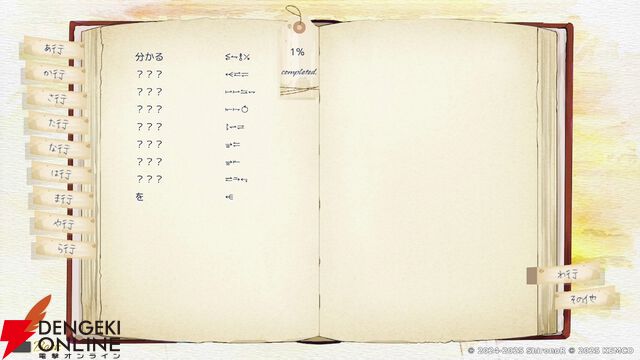 あ行
か行
さ行
た行
な行
は行
ま行
や行
ら行
分かる
？？？
？？？
？？？
？？？
？？？
？？？
？？？
を
1%
completed
わ行
その他
DENGEKI
ONLINE
電撃オンライン
© 2024-2025 ShironoR © 2025 KEMCO